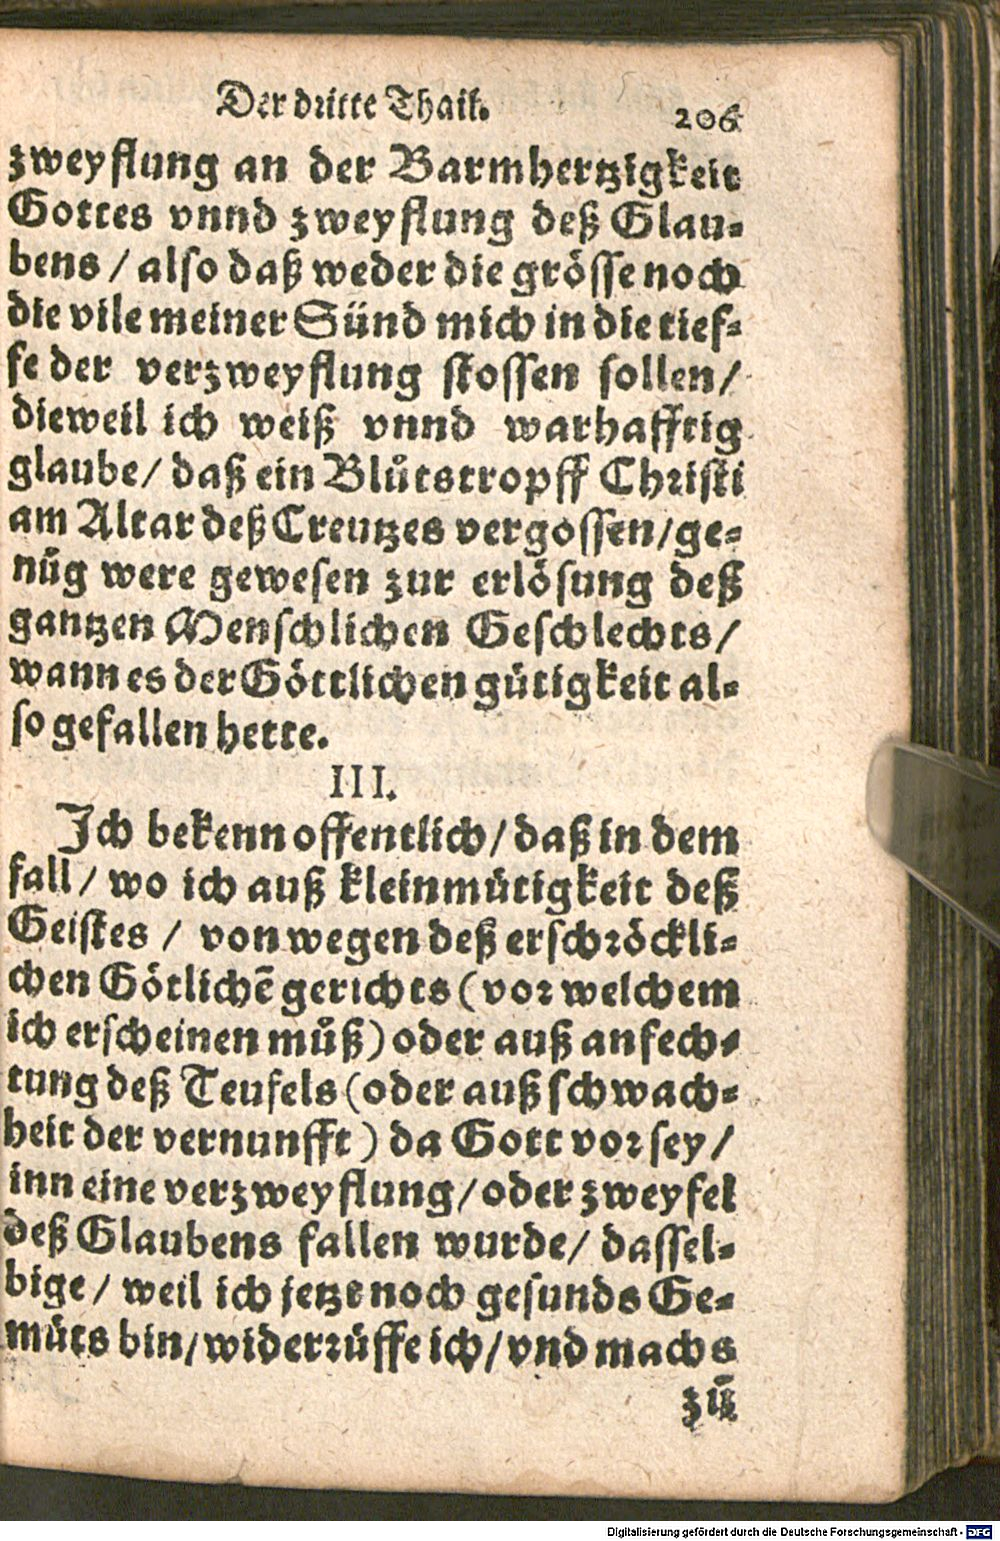 Der dritte Thail. 206
zweyflung an der Barmhertzigkeit
Gottes vnnd zweyflung deß Glau-
bens / also daß weder die grösse noch
die vile meiner Sünd mich in die tief-
fe der verzweyflung stossen sollen /
dieweil ich weiß vnnd warhafftig
glaube / daß ein Blůtstropff Christi
am Altar deß Creutzes vergossen / ge-
nůg were gewesen zur erlösung deß
gantzen Menschlichen Geschlechts /
wann es der Göttlichen gütigkeit al-
so gefallen hette.
III.
Ich bekenn offentlich / daß in dem
fall / wo ich auß kleinmütigkeit deß
Geistes / von wegen deß erschröckli-
chen Götlichẽ gerichts (vor welchem
ich erscheinen můß) oder auß anfech-
tung deß Teufels (oder auß schwach-
heit der vernunfft) da Gott vor sey /
inn eine verzweyflung / oder zweyfel
deß Glaubens fallen wurde / dassel-
bige / weil ich jetzt noch gesunds Ge-
müts bin / widerrüffe ich / vnd machs
zů
Digitalisierung gefördert durch die Deutsche Forschungsgemeinschaft - DFG